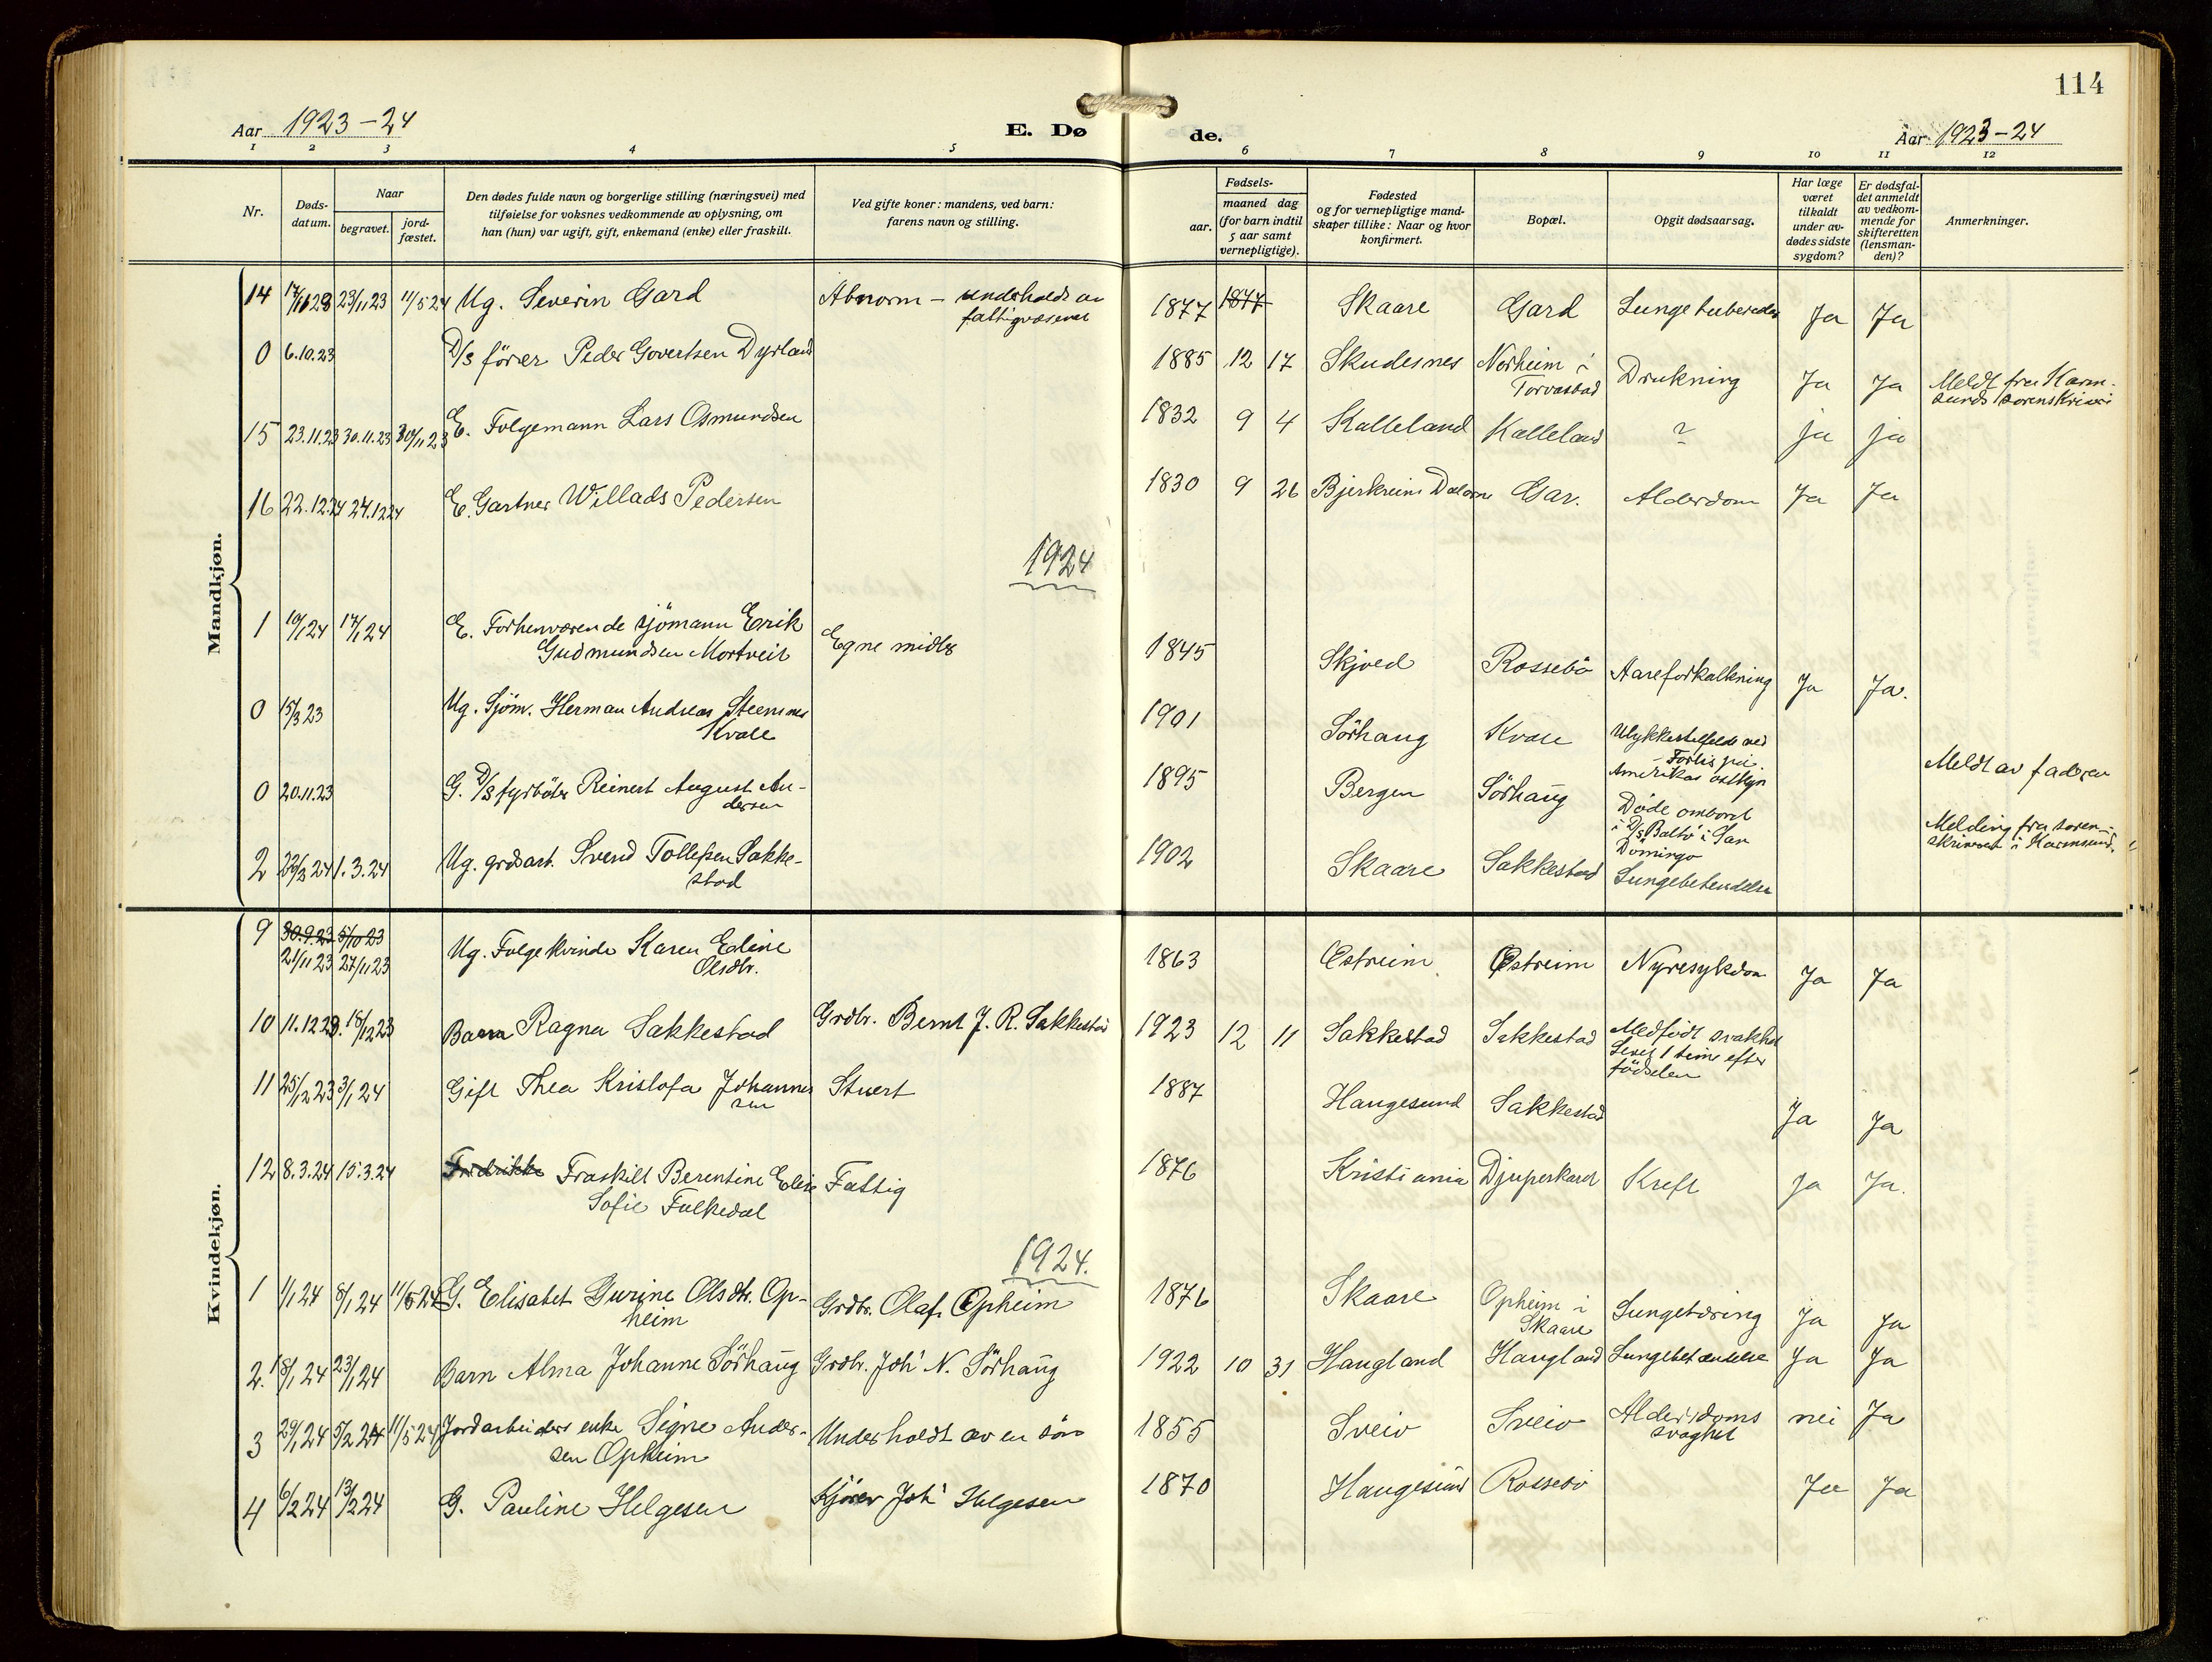 114
Aar 1923-24
E. Døde.
Aar 1923-24
1 2 3 4 5 6 7 8 9 10 11 12
Nr.
Døds-
datum.
Naar
begravet.
jord-
fæstet.
Den dødes fulde navn og borgerlige stilling (næringsvei) med
tilføielse for voksnes vedkommende av oplysning, om
han (hun) var ugift, gift, enkemand (enke) eller fraskilt.
Ved gifte koner: mandens, ved barn:
farens navn og stilling.
Fødsels-
aar.
maaned dag
(for barn indtil
5 aar samt
vernepligtige).
Fødested
og for vernepligtige mand-
skaper tillike: Naar og hvor
konfirmert.
Bopæl.
Opgit dødsaarsag.
Har læge
været
tilkaldt
under av-
dødes sidste
sygdom?
Er dødsfal-
det anmeldt
av vedkom-
mende for
skifteretten
(lensman-
den)?
Anmerkninger.
Mandkjøn.
14 23/11 23 11/5 24 Ug. Severin Gard Abnorm - underholdt av
fattigvæsenet 1877 1877 Skaare Gard Lungetuberculos Ja Ja
0 6.10.23 D/s förer Peder Govertsen Dyrland 1885 12 17 Skudesnes Norheim i
Torvastad Drukning Ja Ja Meldt fra Karm-
sunds sorenskriveri
15 23.11.23 30.11.23 30/11 23 E. Folgemann Lars Osmundsen 1832 9 4 Kalleland Kalleland ? ja ja
16 22.12.24 24.12 24 E. Gartner Willads Pedersen 1830 9 26 Bjerkreim Dalarne Gar. Alderdom Ja Ja
1924
1 10/1 24 17/1 24 E. Forhenværende sjömann Erik
Gudmundsen Mortveit Egne midler 1845 Skjold Rossebö Aareforkalkning Ja Ja.
0 15/3 23 Ug. Sjöm. Herman Andreas Steensnes
Kvale 1901 Sörhaug Kvale Ulykkestilfelde ved
Forlis på
Amerikas østkyst
0 20.11.23 G. D/s fyrböter Reinert August An-
dersen 1895 Bergen Sörhaug Døde ombord
i D/s "Balto" i San
Domingo Meldt av faderen
2 22/2 24 1.3.24 Ug. grdsarb. Svend Tollefsen Sakke-
stad 1902 Skaare Sakkestad Lungebetendelse Melding fra soren-
skriveren i Karmsund.
Kvindekjøn.
9 30.9.23 5/10 23
21/11 23 27/11 23 Ug. Folgekvinde Karen Eline
Olsdtr. 1863 Østreim Østreim Nyresykdom Ja Ja
10 11.12 23. 18/12 23 Barn Ragna Sakkestad Grdbr. Bernt J. R. Sakkestad 1923 12 11 Sakkestad Sakkestad Medfödt svakhet
Levet 1 time efter
födselen
11 25/12 23 3/1 24 Gift Thea Kristofa Johannes
sen Stuert 1887 Haugesund Sakkestad Ja Ja
12 8.3.24 15.3.24 Fredrikke Fraskilt Berentine Elise
Sofie Folkedal Fattig 1876 Kristiania Djupeskard Kreft Ja Ja.
1924.
1 1/1 24 8/1 24 11/5 24 G. Elisabet Gurine Olsdtr. Op-
heim Grdbr. Olaf Opheim 1876 Skaare Opheim i
Skaare Lungetæring Ja Ja
2. 18/1 24 23/1 24 Barn Alma Johanne Sörhaug Grdbr. Joh' N. Sörhaug 1922 10 31 Haugland Haugland Lungebetændelse Ja Ja
3 29/1 24 5/2 24 11/5 24 Jordarbeiders enke Signe Ander-
sen Opheim Underholdt av en sön 1855 Sveio Sveio Alderdoms
svaghet nei Ja
4 6/2 24 13/2 24 G. Pauline Helgesen Kjörer Joh' Helgesen 1870 Haugesund Rossebö Ja Ja